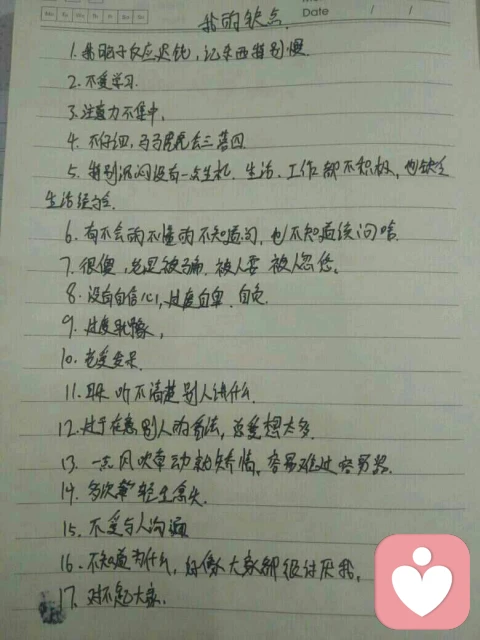 我的缺点
Date / /
1. 我脑子反应迟钝, 记东西特别慢
2. 不爱学习.
3. 注意力不集中.
4. 不仔细, 马马虎虎丢三落四.
5. 特别沉闷没有一点生机. 生活、工作都不积极, 也缺乏
生活经验.
6. 有不会的不懂的不知道问, 也不知道该问啥.
7. 很傻, 总是被骗. 被人耍 被人忽悠。
8. 没有自信心, 过度自卑. 自负.
9. 过度犹豫.
10. 老爱发呆.
11. 耳朵 听不清楚别人讲什么.
12. 过于在意别人的看法, 总爱想太多.
13. 一点风吹草动就矫情, 容易难过容易
14. 多次 轻生念头.
15. 不爱与人沟通
16. 不知道为什么, 好像大家都很讨厌我.
17. 对不起大家.